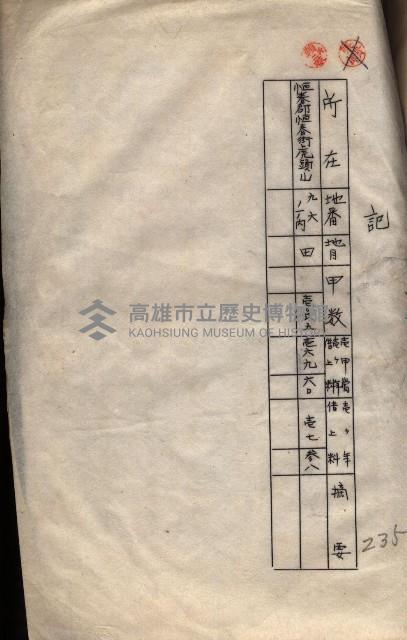 記
所在
地番
地目
甲数
壱甲當
壱ヶ年
借上料
壱ヶ年
借上料
摘要
恒春郡恒春街虎頭山
九六
ノ一内
田
壱六九
六〇
壱七
参八
235
高雄市立歷史博物館
KAOHSIUNG MUSEUM OF HISTORY